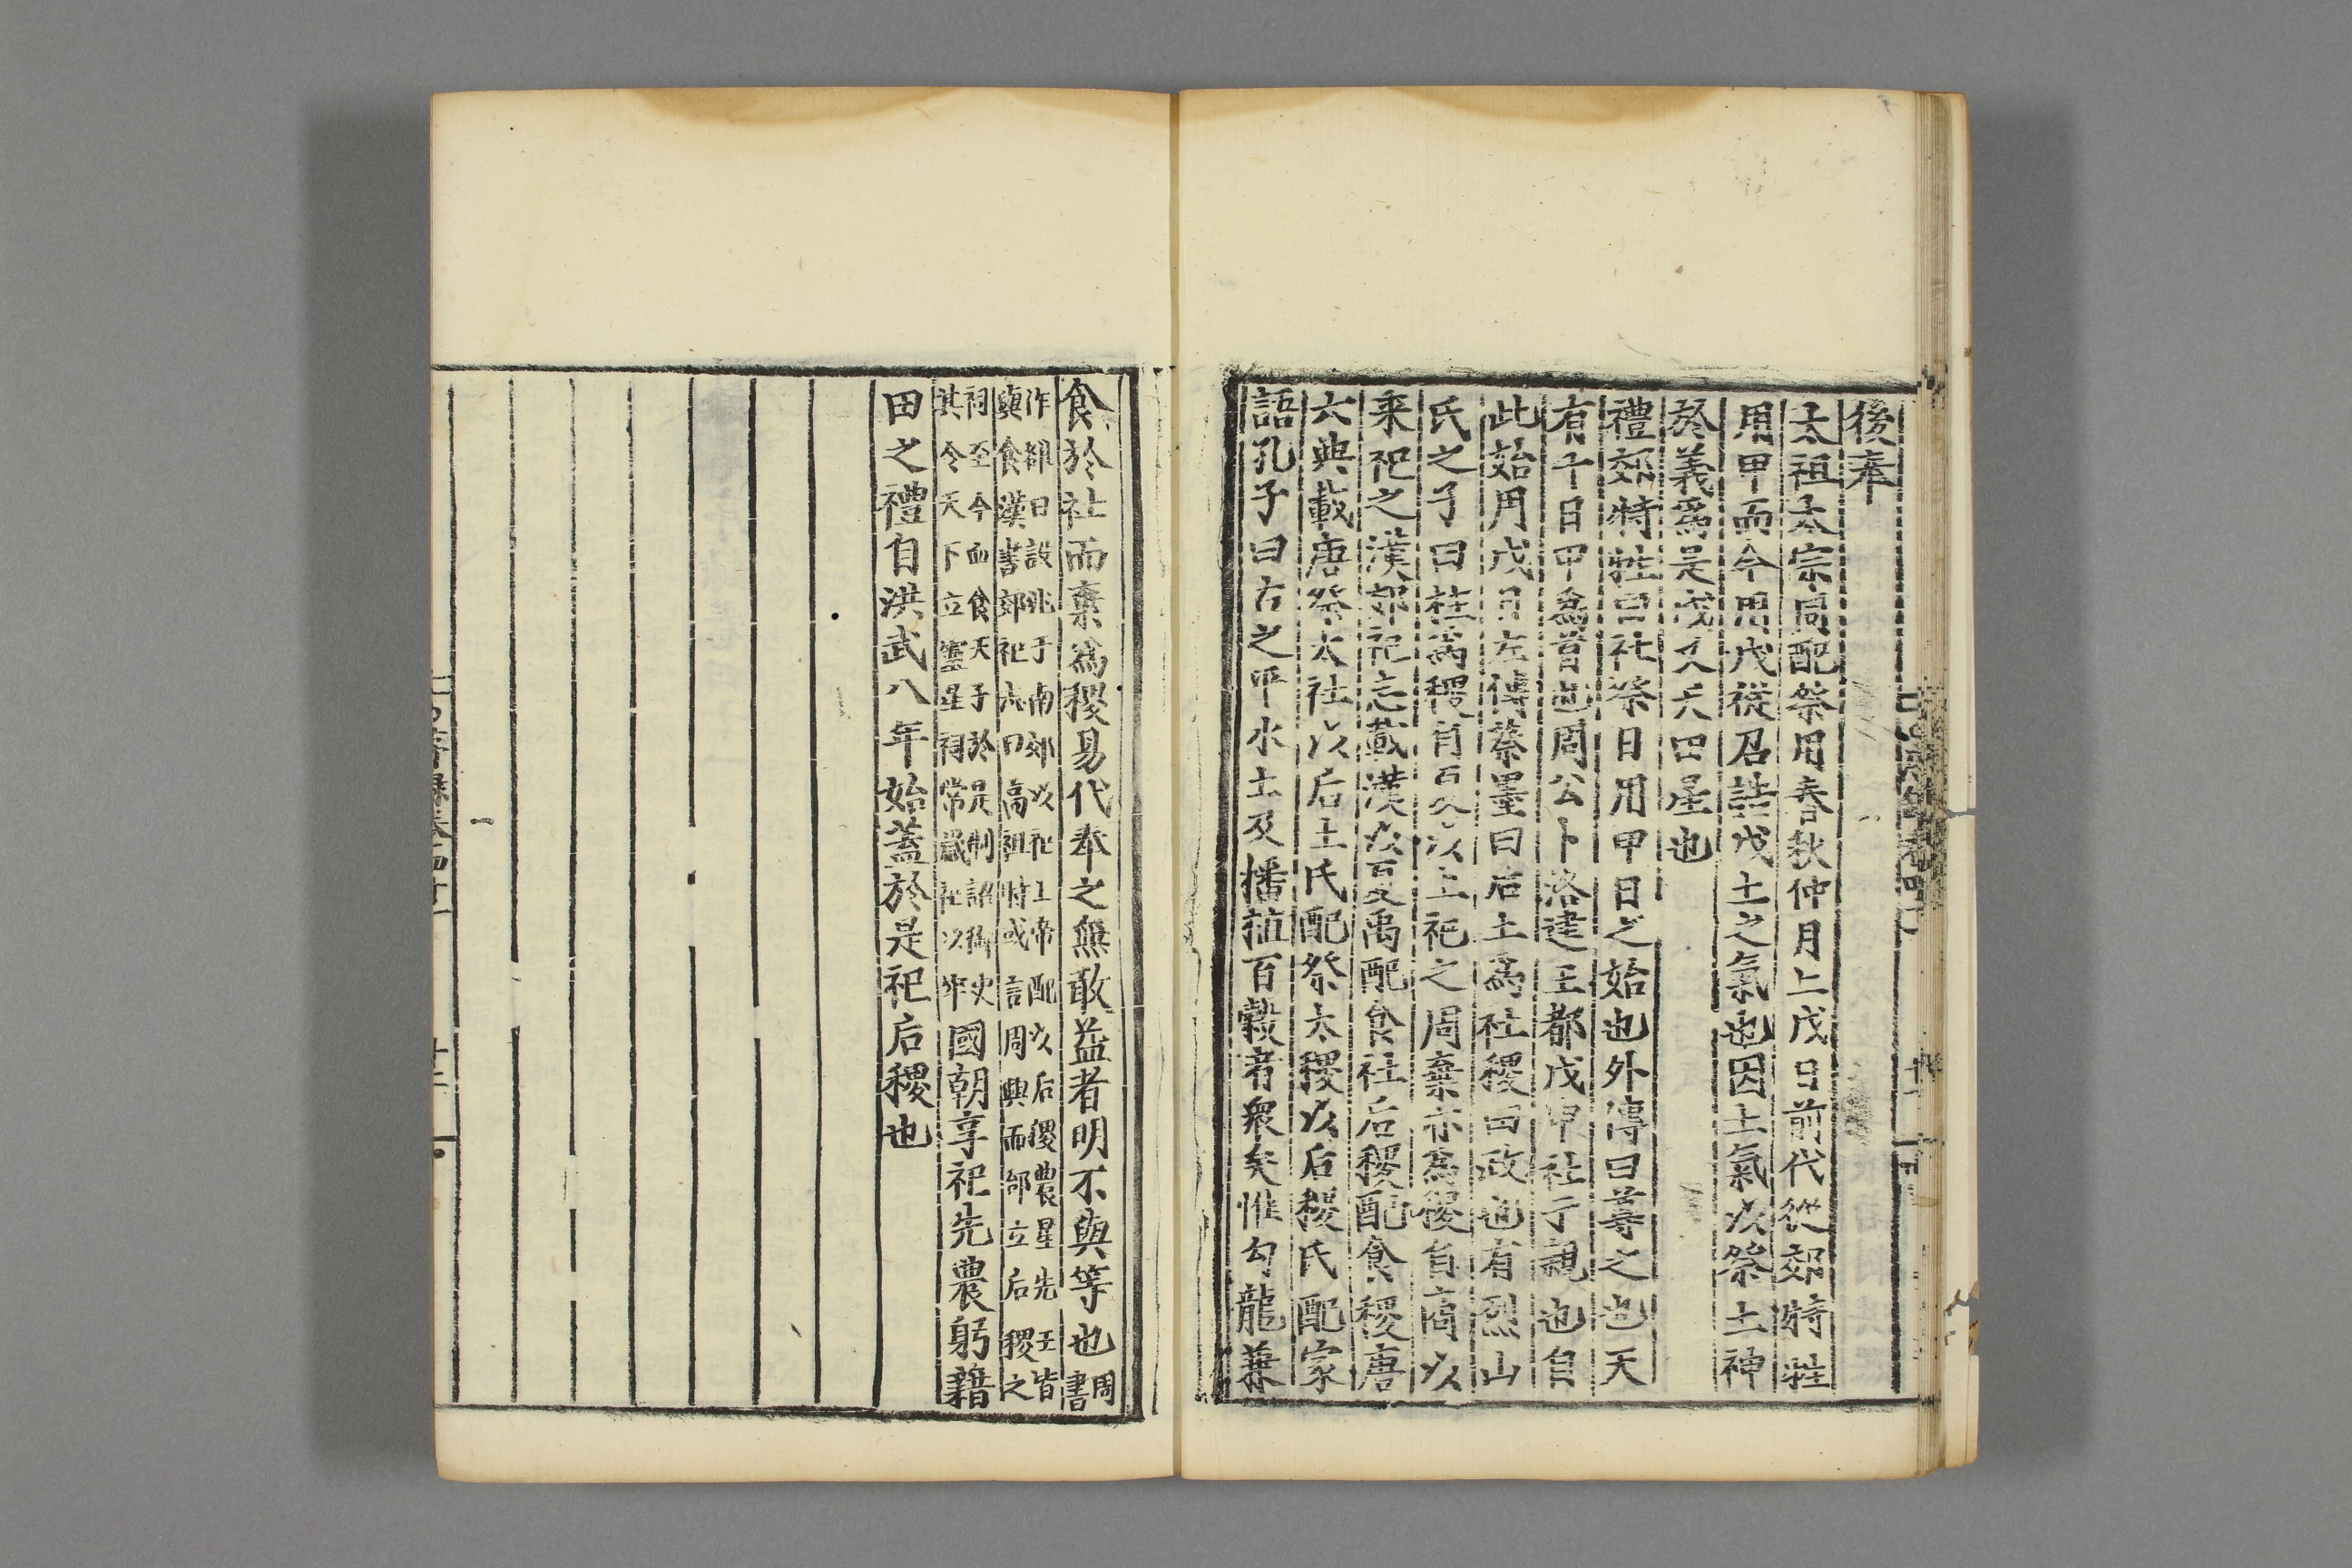 後奉
太祖太宗同配祭用春秋仲月上戊日前代從郊特牲
用甲而今用戊從召誥戊土之氣也因土氣以祭土神
於義爲是戊又天田星也
禮郊特牲曰社祭日用甲日之始也外傳曰尊之也天
有十日甲爲首也周公卜洛建王都戊申社于親也自
此始用戊日左傳蔡墨曰后土爲社稷田政也有烈山
氏之子曰柱爲稷自夏以上祀之周棄亦爲稷自商以
來祀之漢郊祀志載漢以夏禹配食社后稷配食稷唐
六典載唐祭太社以后土氏配祭太稷以后稷氏配家
語孔子曰古之平水土及播殖百穀者衆矣惟勾龍兼
食於社而棄爲稷易代奉之無敢益者明不與等也周書
作雒曰設兆于南郊以祀上帝配以后稷農星先王皆
與食漢書郊祀志曰高祖時或言周興而邰立后稷之
祠至今血食天子於是制詔御史
其令天下立靈星祠常歲祀以牢國朝享祀先農躬藉
田之禮自洪武八年始蓋於是祀后稷也